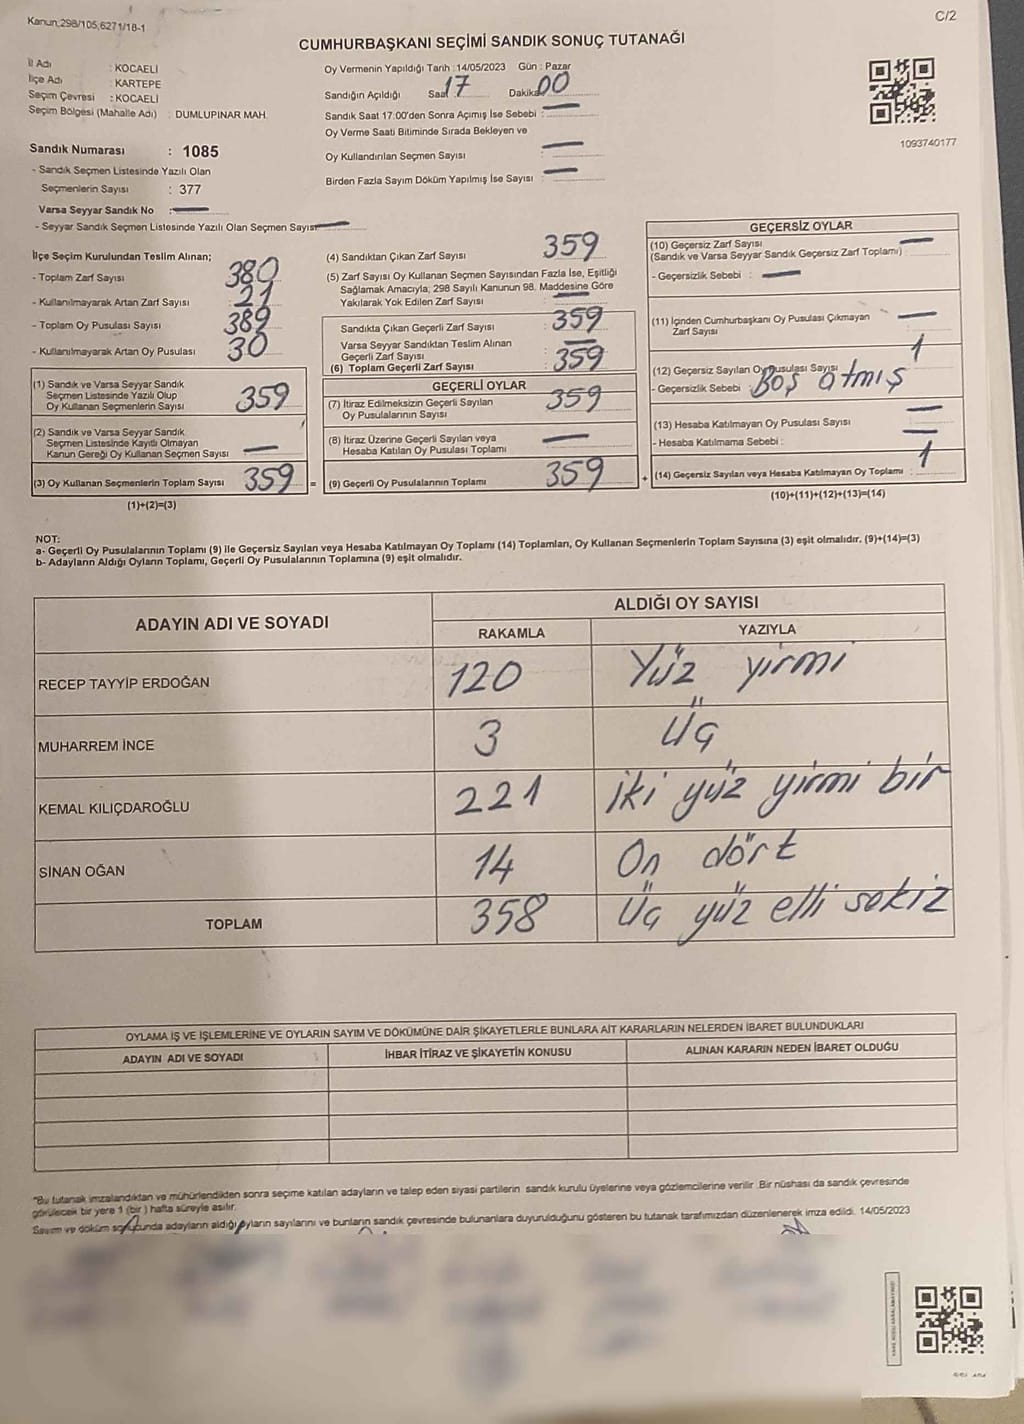 Kanun;298/105;6271/18-1
C/2
CUMHURBAŞKANI SEÇİMİ SANDIK SONUÇ TUTANAĞI
İl Adı : KOCAELİ
İlçe Adı : KARTEPE
Seçim Çevresi : KOCAELİ
Seçim Bölgesi (Mahalle Adı) : DUMLUPINAR MAH.
Sandık Numarası : 1085
- Sandık Seçmen Listesinde Yazılı Olan
Seçmenlerin Sayısı : 377
Varsa Seyyar Sandık No : —
- Seyyar Sandık Seçmen Listesinde Yazılı Olan Seçmen Sayısı —
Oy Vermenin Yapıldığı Tarih :14/05/2023 Gün : Pazar
Sandığın Açıldığı Saat 17 Dakika 00
Sandık Saat 17:00'den Sonra Açımış İse Sebebi : —
Oy Verme Saati Bitiminde Sırada Bekleyen ve
Oy Kullandırılan Seçmen Sayısı : —
Birden Fazla Sayım Döküm Yapılmış İse Sayısı : —
1093740177
İlçe Seçim Kurulundan Teslim Alınan;
- Toplam Zarf Sayısı : 380
- Kullanılmayarak Artan Zarf Sayısı : 21
- Toplam Oy Pusulası Sayısı : 389
- Kullanılmayarak Artan Oy Pusulası : 30
(1) Sandık ve Varsa Seyyar Sandık
Seçmen Listesinde Yazılı Olup
Oy Kullanan Seçmenlerin Sayısı 359
(2) Sandık ve Varsa Seyyar Sandık
Seçmen Listesinde Kayıtlı Olmayan
Kanun Gereği Oy Kullanan Seçmen Sayısı —
(3) Oy Kullanan Seçmenlerin Toplam Sayısı 359
(1)+(2)=(3)
=
(4) Sandıktan Çıkan Zarf Sayısı 359
(5) Zarf Sayısı Oy Kullanan Seçmen Sayısından Fazla İse, Eşitliği
Sağlamak Amacıyla; 298 Sayılı Kanunun 98. Maddesine Göre
Yakılarak Yok Edilen Zarf Sayısı : —
Sandıkta Çıkan Geçerli Zarf Sayısı : 359
Varsa Seyyar Sandıktan Teslim Alınan
Geçerli Zarf Sayısı : —
(6) Toplam Geçerli Zarf Sayısı : 359
GEÇERLİ OYLAR
(7) İtiraz Edilmeksizin Geçerli Sayılan
Oy Pusulalarının Sayısı 359
(8) İtiraz Üzerine Geçerli Sayılan veya
Hesaba Katılan Oy Pusulası Toplamı —
(9) Geçerli Oy Pusulalarının Toplamı 359
+
GEÇERSİZ OYLAR
(10) Geçersiz Zarf Sayısı —
(Sandık ve Varsa Seyyar Sandık Geçersiz Zarf Toplamı)
- Geçersizlik Sebebi : —
(11) İçinden Cumhurbaşkanı Oy Pusulası Çıkmayan
Zarf Sayısı —
(12) Geçersiz Sayılan Oy Pusulası Sayısı 1
- Geçersizlik Sebebi : Boş atmış
(13) Hesaba Katılmayan Oy Pusulası Sayısı —
- Hesaba Katılmama Sebebi : —
(14) Geçersiz Sayılan veya Hesaba Katılmayan Oy Toplamı 1
(10)+(11)+(12)+(13)=(14)
NOT:
a- Geçerli Oy Pusulalarının Toplamı (9) ile Geçersiz Sayılan veya Hesaba Katılmayan Oy Toplamı (14) Toplamları, Oy Kullanan Seçmenlerin Toplam Sayısına (3) eşit olmalıdır. (9)+(14)=(3)
b- Adayların Aldığı Oyların Toplamı, Geçerli Oy Pusulalarının Toplamına (9) eşit olmalıdır.
ADAYIN ADI VE SOYADI
ALDIĞI OY SAYISI
RAKAMLA YAZIYLA
RECEP TAYYİP ERDOĞAN 120 Yüz yirmi
MUHARREM İNCE 3 Üç
KEMAL KILIÇDAROĞLU 221 iki yüz yirmi bir
SİNAN OĞAN 14 On dört
TOPLAM 358 Üç yüz elli sekiz
OYLAMA İŞ VE İŞLEMLERİNE VE OYLARIN SAYIM VE DÖKÜMÜNE DAİR ŞİKAYETLERLE BUNLARA AİT KARARLARIN NELERDEN İBARET BULUNDUKLARI
ADAYIN ADI VE SOYADI İHBAR İTİRAZ VE ŞİKAYETİN KONUSU ALINAN KARARIN NEDEN İBARET OLDUĞU
*Bu tutanak imzalandıktan ve mühürlendikden sonra seçime katılan adayların ve talep eden siyasi partilerin sandık kurulu üyelerine veya gözlemcilerine verilir .Bir nüshası da sandık çevresinde
görülecek bir yere 1 (bir ) hafta süreyle asılır.
Sayım ve döküm sonucunda adayların aldığı oyların sayılarını ve bunların sandık çevresinde bulunanlara duyurulduğunu gösteren bu tutanak tarafımızdan düzenlenerek imza edildi. 14/05/2023